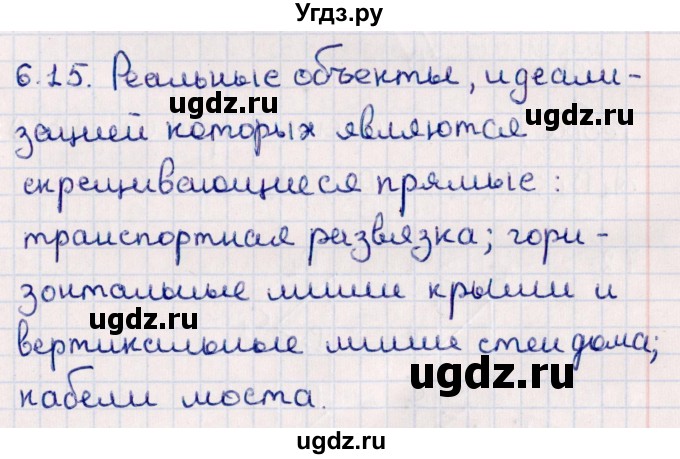 Угдз.ру
6.15. Реальные объекты, идеали-
ugdz.ru
ugdz.ru
зацией которых являются
скрещивающиеся прямые:
транспортная развязка; гори-
зонтальные линии крыши и
ugdz.ru
ugdz.ru
вертикальные линии стен дома;
ugdz.ru
кабели моста.
ugdz.ru